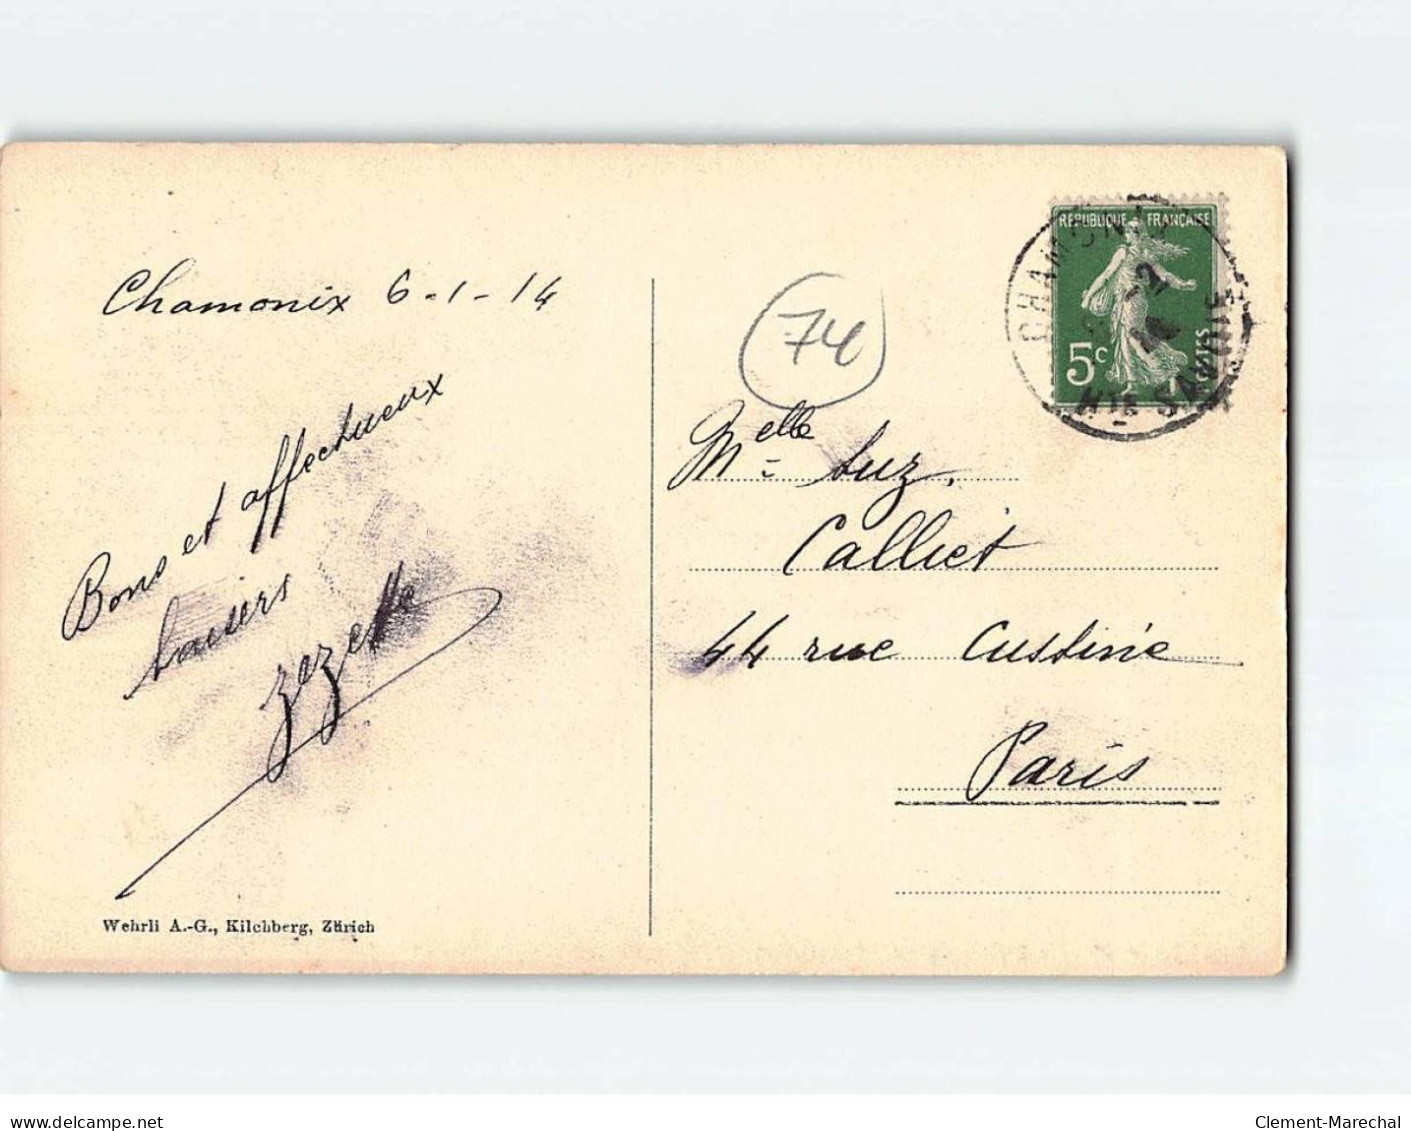 Chamonix 6-1-14
Bons et affectueux
baisers
Zezette
Wehrli A.-G., Kilchberg, Zürich
74
REPUBLIQUE FRANÇAISE
5c
POSTES
CHAMONIX
-2
Hte SAVOIE
Melle Suz.
Calliet
44 rue Custine
Paris
delcampe.net
Clement-Marechal